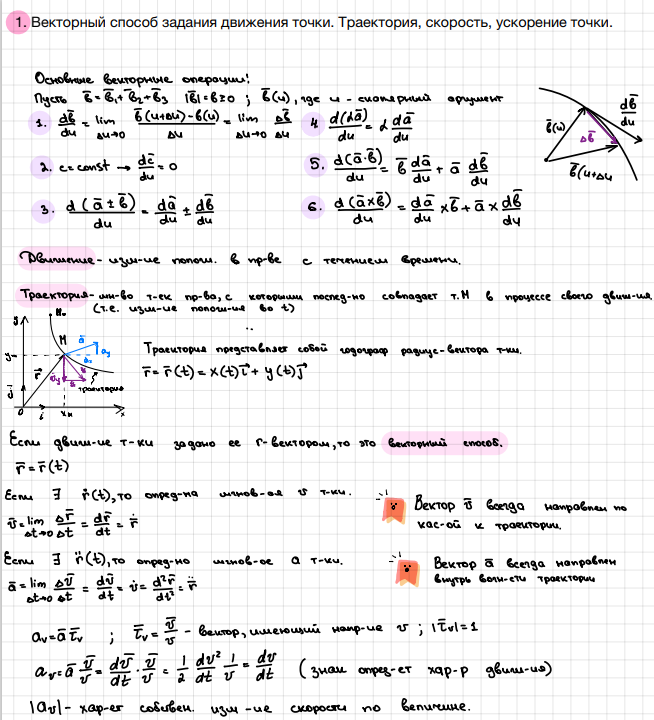 1. Векторный способ задания движения точки. Траектория, скорость, ускорение точки.
Основные векторные операции:
Пусть b̄ = b̄₁+b̄₂+b̄₃ |b̄|=b≥0 ; b̄(u), где u - скалярный аргумент
1. db̄/du = lim Δu→0 (b̄(u+Δu)-b̄(u))/Δu = lim Δu→0 Δb̄/Δu
4 d(αā)/du = α dā/du
2. c=const → dc̄/du = 0
5. d(ā·b̄)/du = b̄ dā/du + ā db̄/du
3. d(ā±b̄)/du = dā/du ± db̄/du
6. d(ā×b̄)/du = dā/du ×b̄+ā× db̄/du
b̄(u)
Δb̄
db̄/du
b̄(u+Δu
Движение - изм-ие полож. в пр-ве с течением времени.
Траектория - мн-во т-ек пр-ва, с которыми послед-но совпадает т.М в процессе своего движ-ия.
(т.е. изм-ие полож-ия во t)
y
M₀
M
ā
r̄
траектория
j̄
0
ī
xₘ
x
Траектория представляет собой годограф радиус-вектора т-ки.
r̄ = r̄(t) = x(t)i⃗ + y(t)j⃗
Если движ-ие т-ки задано ее r-вектором, то это векторный способ.
r̄ = r̄(t)
Если ∃ ṙ(t), то опред-на мгнов-ая v т-ки.
v̄ = lim Δt→0 Δr̄/Δt = dr̄/dt = ṙ
Вектор v̄ всегда направлен по
кас-ой к траектории.
Если ∃ r̈(t), то опред-но мгнов-ое a т-ки.
ā = lim Δt→0 Δv̄/Δt = dv̄/dt = v̇ = d²r̄/dt² = r̈
Вектор ā всегда направлен
внутрь вогн-сти траектории
aᵥ = ā τ̄ᵥ ; τ̄ᵥ = v̄/v - вектор, имеющий напр-ие v ; |τ̄ᵥ|=1
aᵥ = ā v̄/v = dv̄/dt · v̄/v = 1/2 dv²/dt 1/v = dv/dt (знак опред-ет хар-р движ-ия)
|aᵥ| - хар-ет собствен. изм-ие скорости по величине.